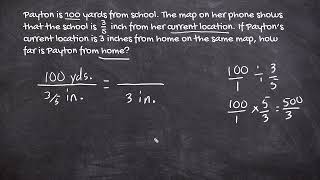 Payton is 100 yards from school. The map on her phone shows
that the school is 3/5 inch from her current location. If Payton's
current location is 3 inches from home on the same map, how
far is Payton from home?
100 yds. / 3/5 in. = / 3 in.
100/1 ÷ 3/5
100/1 × 5/3 = 500/3